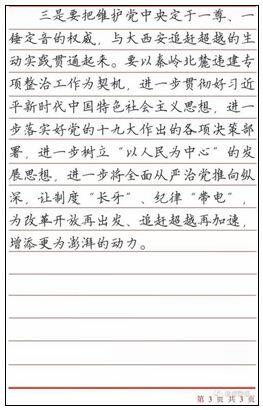 三是要把维护党中央定于一尊、一
锤定音的权威，与大西安追赶超越的生
动实践贯通起来。要以秦岭北麓违建专
项整治工作为契机，进一步贯彻好习近
平新时代中国特色社会主义思想，进一
步落实好党的十九大作出的各项决策部
署，进一步树立“以人民为中心”的发
展思想，进一步将全面从严治党推向纵
深，让制度“长牙”、纪律“带电”，
为改革开放再出发、追赶超越再加速，
增添更为澎湃的动力。
第 3 页 共 3 页